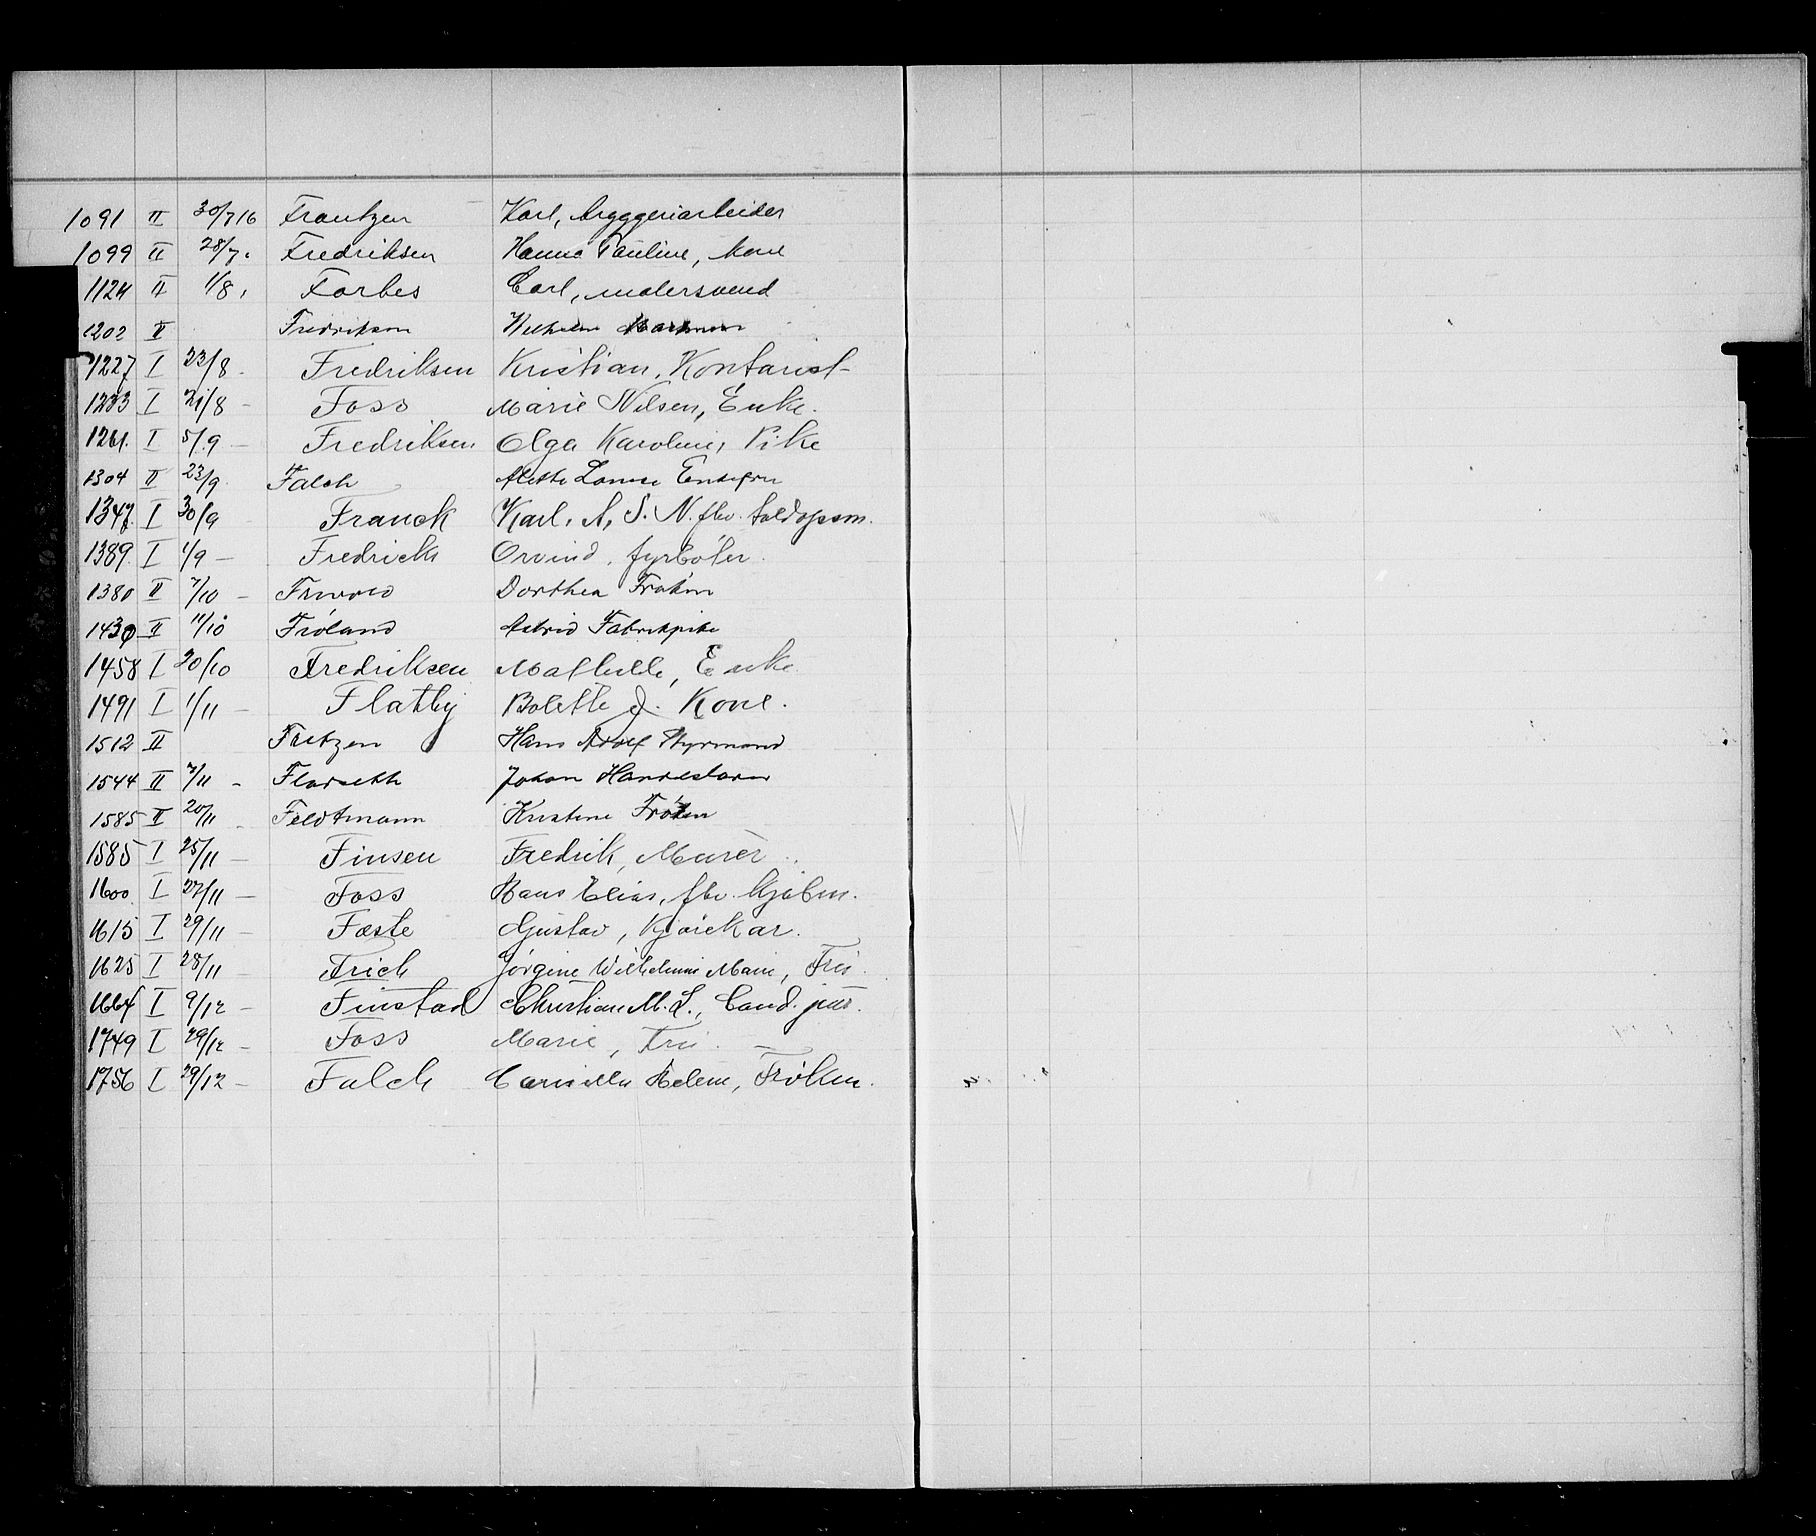 1091 II 30/7 16 Frantzen Karl, bryggeriarbeider
1099 II 28/7 Fredriksen Hanna Pauline, kone
1124 II 1/8 Forbes Carl, malersvend
1202 II Fredriksen Wilhelm
1227 I 23/8 Fredriksen Kristian, Kontorist
1233 I 21/8 - Foss Marie Nilsen, Enke.
1261. I 5/9 - Fredriksen Olga Karoline, Pike
1304 II 23/9 Falch Alette Louise Enkefru
1347 I 30/9 Franck Karl. A. S. N. fhv. toldopsm.
1389. I 1/9 - Fredrich Orvind. fyrbøter.
1380 II 7/10 - Dorthea Frøken
1430 II 11/10 Frøland Astrid Fabrikpike
1458 I 20/10 Fredriksen Mathilde, Enke
1491 I 1/11 - Flatby Bolette J. Kone.
1512 II Fritzen Hans Adolf Styrmand
1544 II 7/11 - Florseth Johan Handelsborg
1585 II 20/11 Feldtmann Kristine Frøken
1585 I 25/11 - Finsen Fredrik, Murer
1600. I 27/11 - Foss Hans Elias, fhv. kjøbm.
1615 I 29/11 - Fæste Gustav, Kjørekar.
1625 I 28/11 - Frich Jørgine Wilhelmine Marie, Fru.
1664 I 9/12 - Finstad Christian M. L., Cand. jur.
1749 I 29/12 - Foss Marie, Fru. -
1756 I 29/12 - Falch Camilla Helene, Frøken.